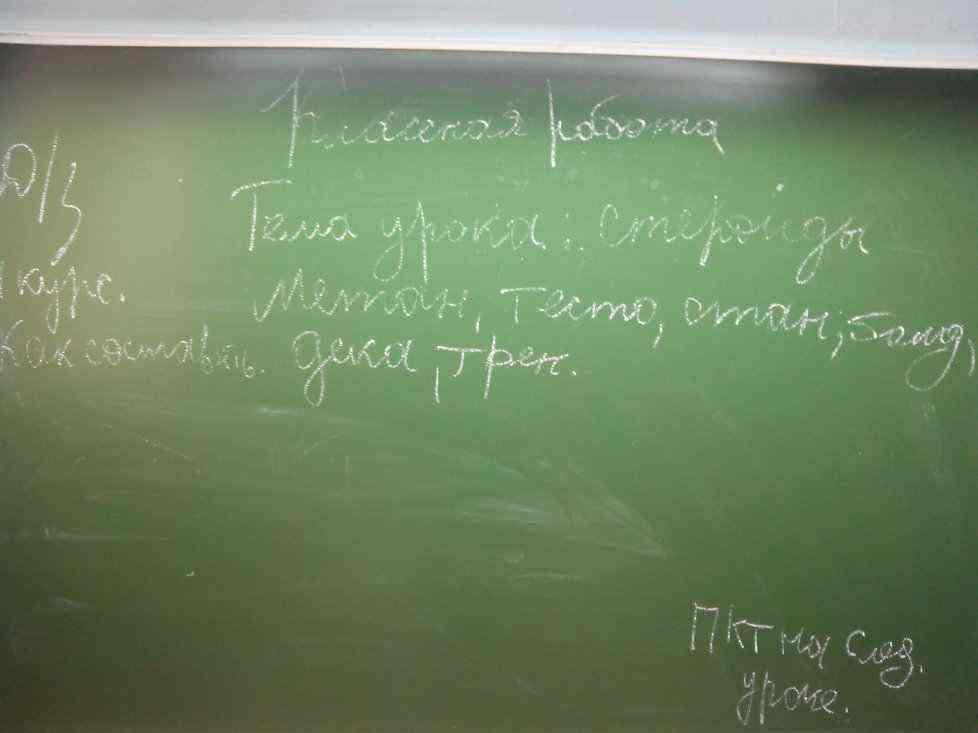 Классная работа
Д/З
Тема урока: Стероиды
1 курс.
Метан, тесто, стан, болд,
Как составить.
дека, трен.
ПКТ на след.
уроке.